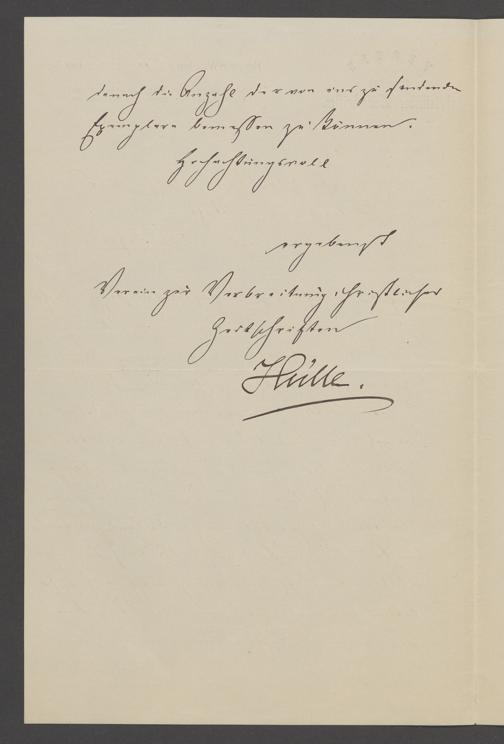 danach die Anzahl der von uns zu sendenden
Exemplare bemessen zu können.
Hochachtungsvoll
ergebenst
Verein zur Verbreitung christlicher
Zeitschriften
Hülle.